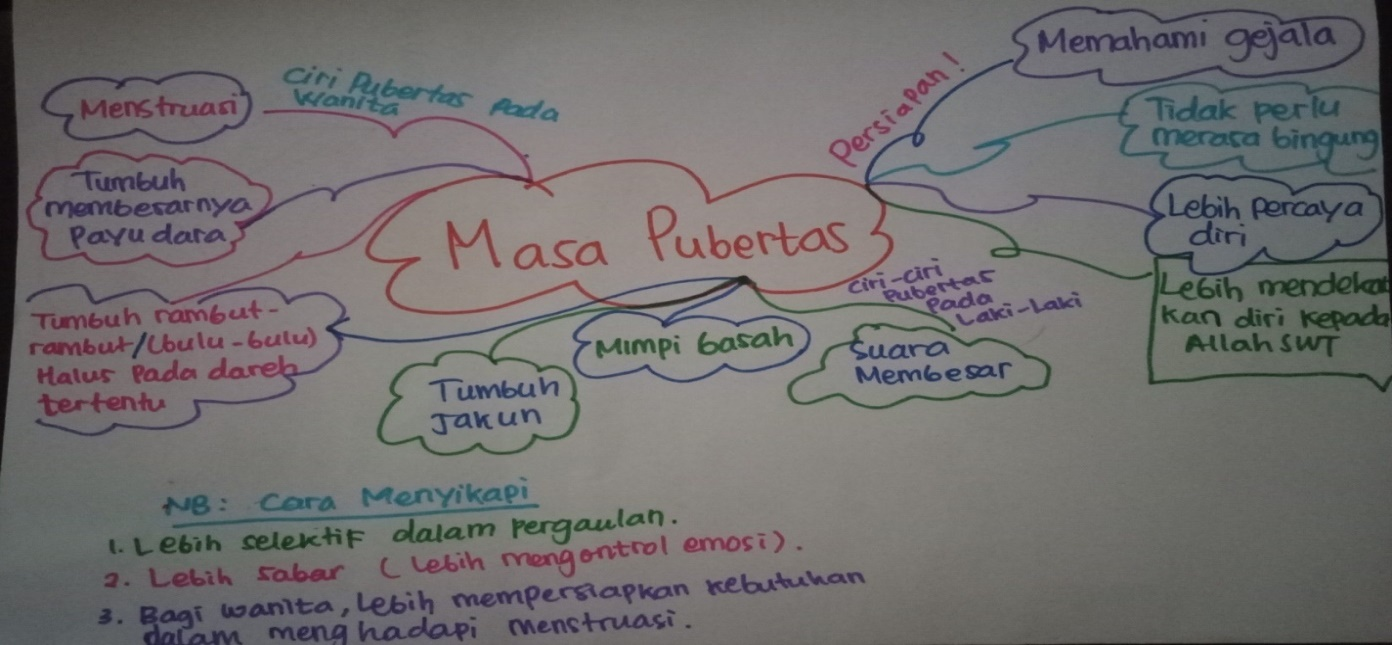 Masa Pubertas
Ciri Pubertas Pada
Wanita
Menstruasi
Tumbuh
membesarnya
Payudara
Tumbuh rambut-
rambut/(bulu-bulu)
Halus Pada dareh
tertentu
Persiapan!
Memahami gejala
Tidak perlu
merasa bingung
Lebih Percaya
diri
Lebih mendekat
kan diri kepada
Allah SWT
Ciri-Ciri
Pubertas
Pada
Laki-Laki
Tumbuh
Jakun
Mimpi basah
Suara
Membesar
NB: Cara Menyikapi
1. Lebih selektif dalam pergaulan.
2. Lebih sabar (Lebih mengontrol emosi).
3. Bagi wanita, Lebih mempersiapkan kebutuhan
dalam menghadapi menstruasi.